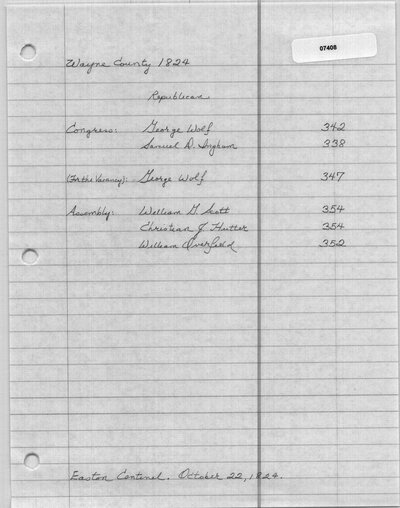 07408
Wayne County 1824
Republican
Congress: George Wolf 342
Samuel D. Ingham 338
(For the Vacancy): George Wolf 347
Assembly: William G. Scott 354
Christian J. Hutter 354
William Overfield 352
Easton Centinel. October 22, 1824.